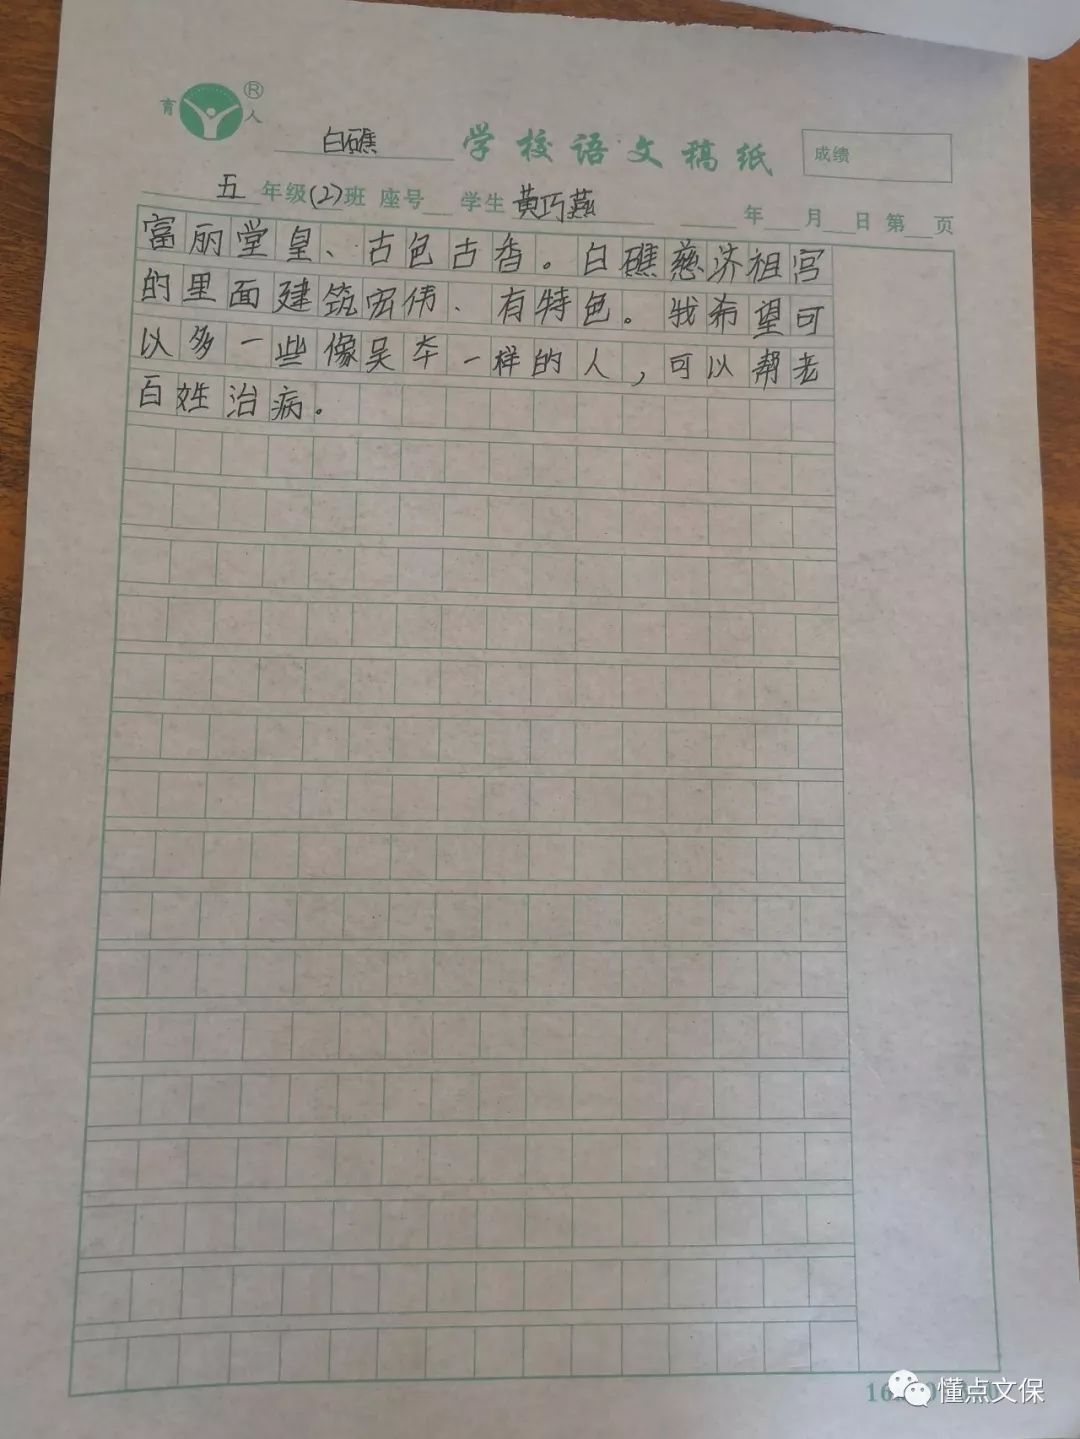 育 人 ®
白礁 学校语文稿纸 成绩
五 年级(2)班 座号 学生 黄巧燕 年 月 日 第 页
富丽堂皇、古色古香。白礁慈济祖宫
的里面建筑宏伟、有特色。我希望可
以多一些像吴夲一样的人，可以帮老
百姓治病。
懂点文保